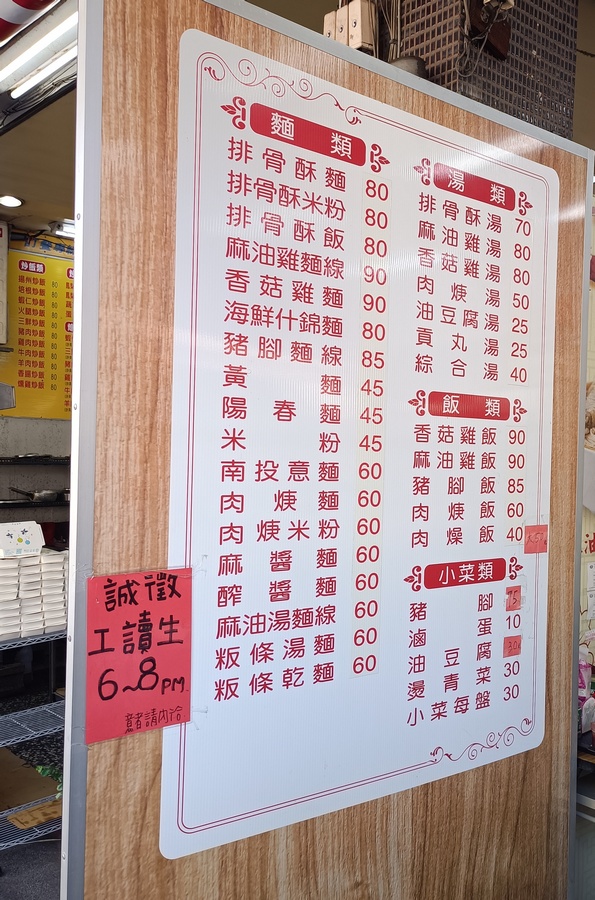 麵類
排骨酥麵 80
排骨酥米粉 80
排骨酥飯 80
麻油雞麵線 90
香菇雞麵 90
海鮮什錦麵 80
豬腳麵線 85
黃麵 45
陽春麵 45
米粉 45
南投意麵 60
肉焿麵 60
肉焿米粉 60
麻醬麵 60
醡醬麵 60
麻油湯麵線 60
粄條湯麵 60
粄條乾麵 60
湯類
排骨酥湯 70
麻油雞湯 80
香菇雞湯 80
肉焿湯 50
油豆腐湯 25
貢丸湯 25
綜合湯 40
飯類
香菇雞飯 90
麻油雞飯 90
豬腳飯 85
肉焿飯 60
肉燥飯 40
小菜類
豬腳 75
滷蛋 10
油豆腐 30
燙青菜 30
小菜每盤 30
誠徵
工讀生
6~8PM
意者請內洽
炒飯類
揚州炒飯
培根炒飯
蝦仁炒飯
火腿炒飯
三鮮炒飯
豬肉炒飯
牛肉炒飯
羊肉炒飯
香腸炒飯
燻雞炒飯